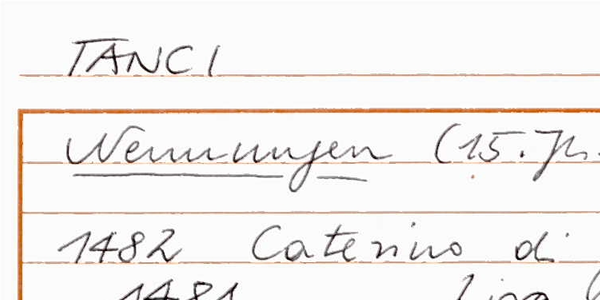 TANCI
Nennungen (15. Jh.
1482 Caterino di
1481